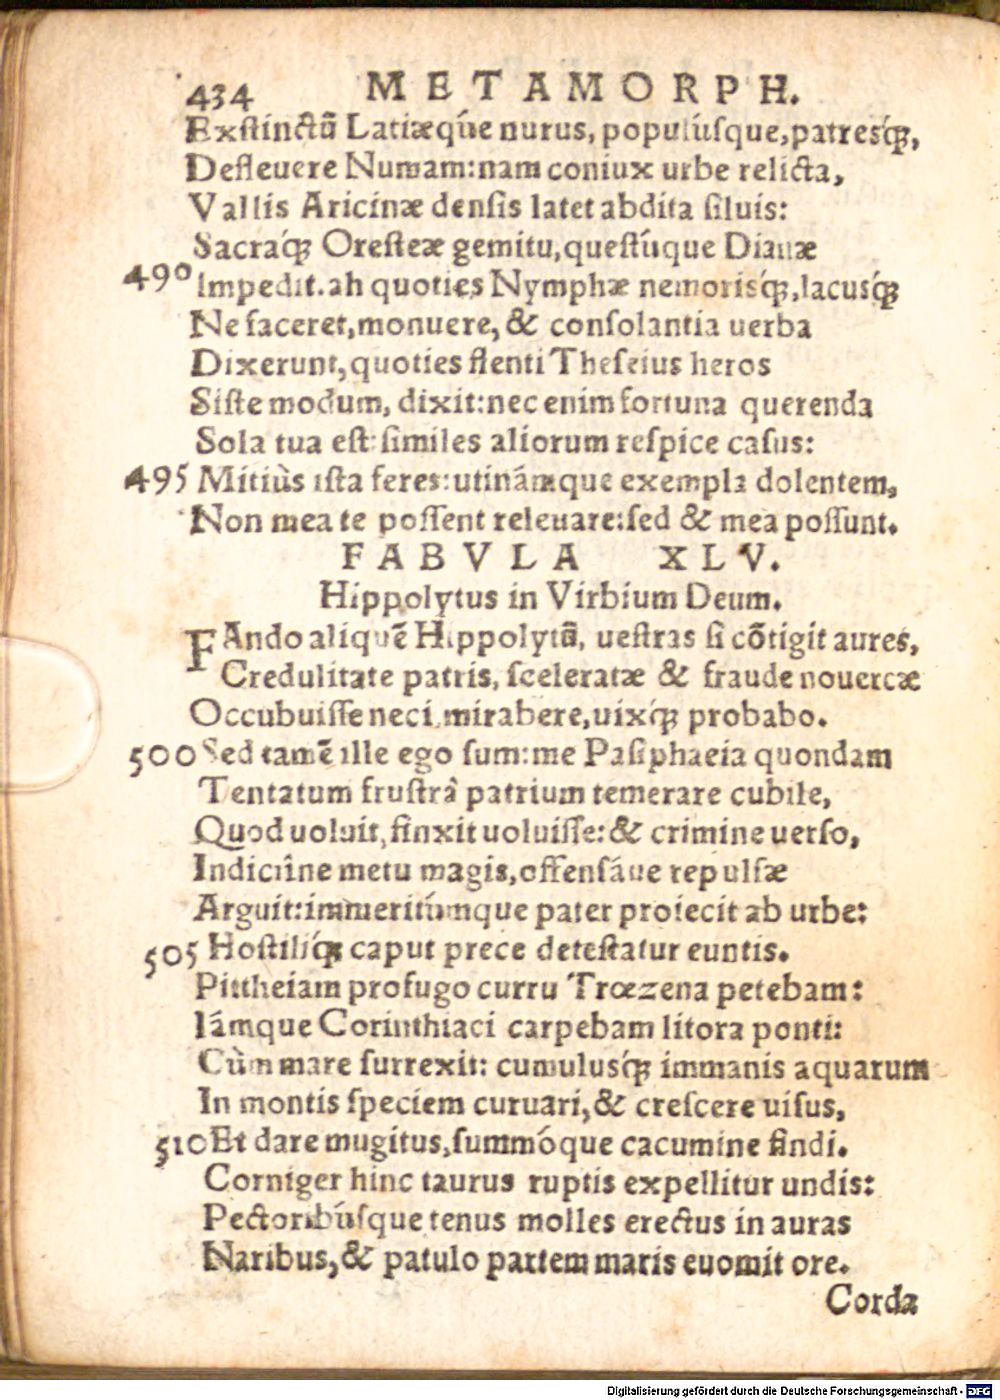 434 METAMORPH.
Exſtinctũ Latiæq́ue nurus, populúſque, patreſq́ꝫ,
Defleuere Numam: nam coniux urbe relicta,
Vallis Aricinæ denſis latet abdita ſiluis:
Sacraq́ꝫ Oreſteæ gemitu, queſtúque Dianæ
490 Impedit. ah quoties Nymphæ nemoriſq́ꝫ, lacuſq́ꝫ
Ne faceret, monuere, & conſolantia uerba
Dixerunt, quoties flenti Theſeius heros
Siſte modum, dixit: nec enim fortuna querenda
Sola tua eſt: ſimiles aliorum reſpice caſus:
495 Mitiùs iſta feres: utinámque exempla dolentem,
Non mea te poſſent releuare: ſed & mea poſſunt.
FABVLA XLV.
Hippolytus in Virbium Deum.
FAndo aliquẽ Hippolytũ, ueſtras ſi cõtigit aures,
Credulitate patris, ſceleratæ & fraude nouercæ
Occubuiſſe neci, mirabere, uixq́ꝫ probabo.
500 Sed tamẽ ille ego ſum: me Paſiphaeia quondam
Tentatum fruſtrâ patrium temerare cubile,
Quod uoluit, finxit uoluiſſe: & crimine uerſo,
Indiciîne metu magis, offenſáue repulſæ
Arguit: immeritúmque pater proiecit ab urbe:
505 Hoſtiliq́ꝫ caput prece deteſtatur euntis.
Pittheiam profugo curru Trœzena petebam:
Iámque Corinthiaci carpebam litora ponti:
Cùm mare ſurrexit: cumuluſq́ꝫ immanis aquarum
In montis ſpeciem curuari, & creſcere uiſus,
510 Et dare mugitus, ſummóque cacumine findi.
Corniger hinc taurus ruptis expellitur undis:
Pectoribúſque tenus molles erectus in auras
Naribus, & patulo partem maris euomit ore.
Corda
Digitalisierung gefördert durch die Deutsche Forschungsgemeinschaft - DFG